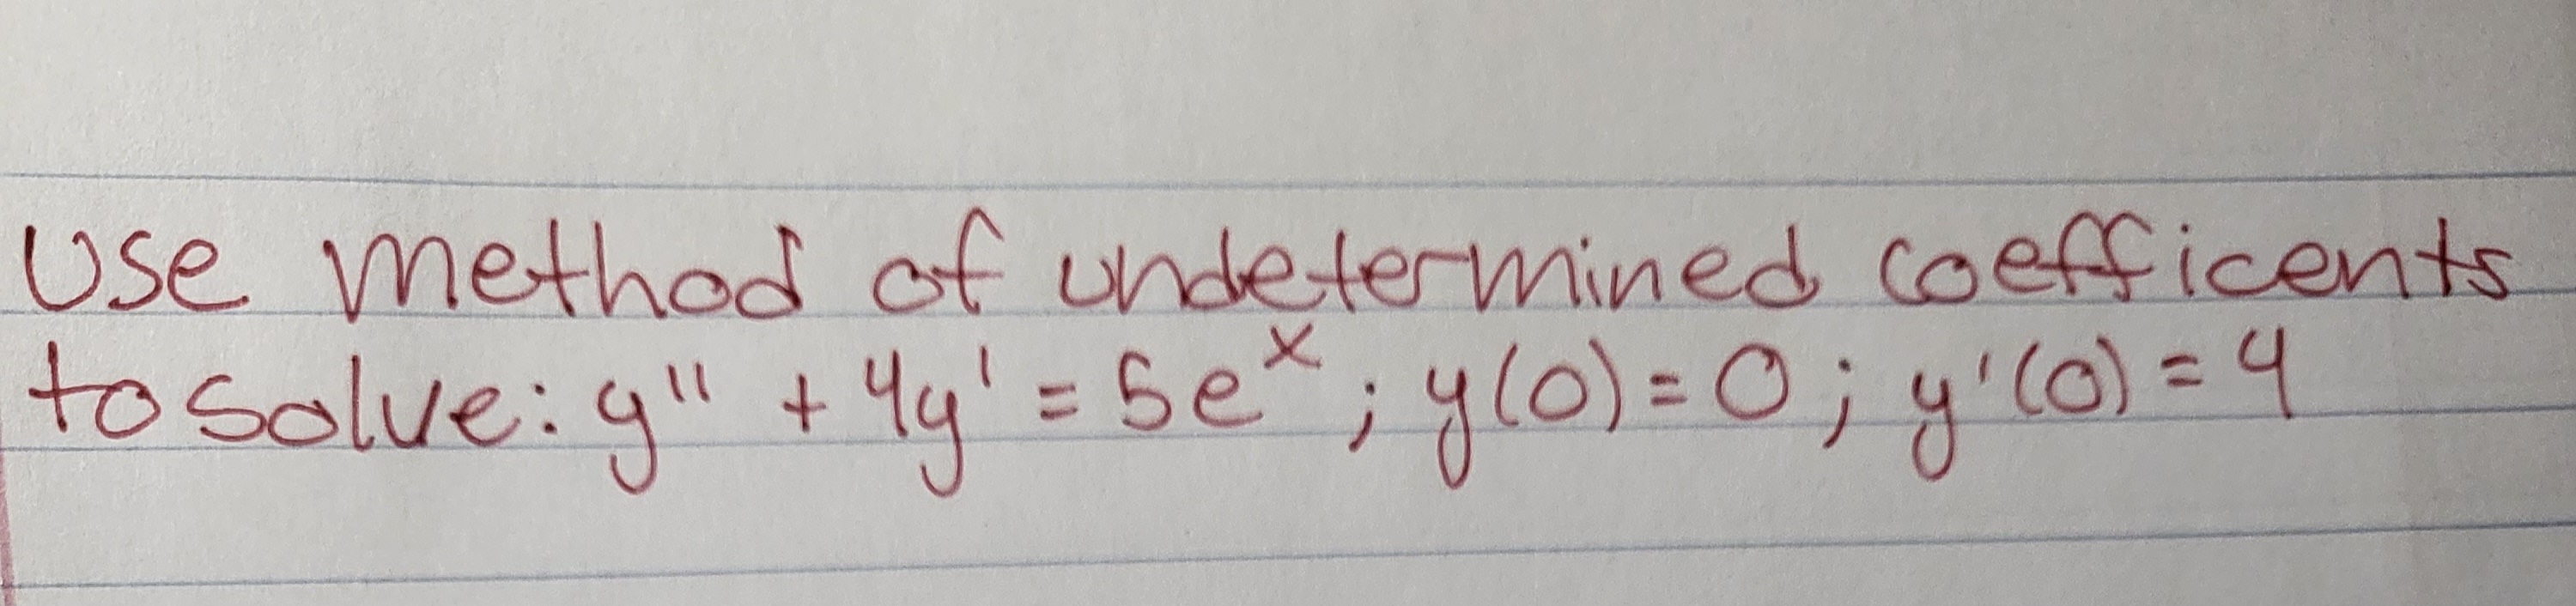 Use method of undetermined coefficents
to solve: y'' + 4y' = 5e^x ; y(0) = 0 ; y'(0) = 4